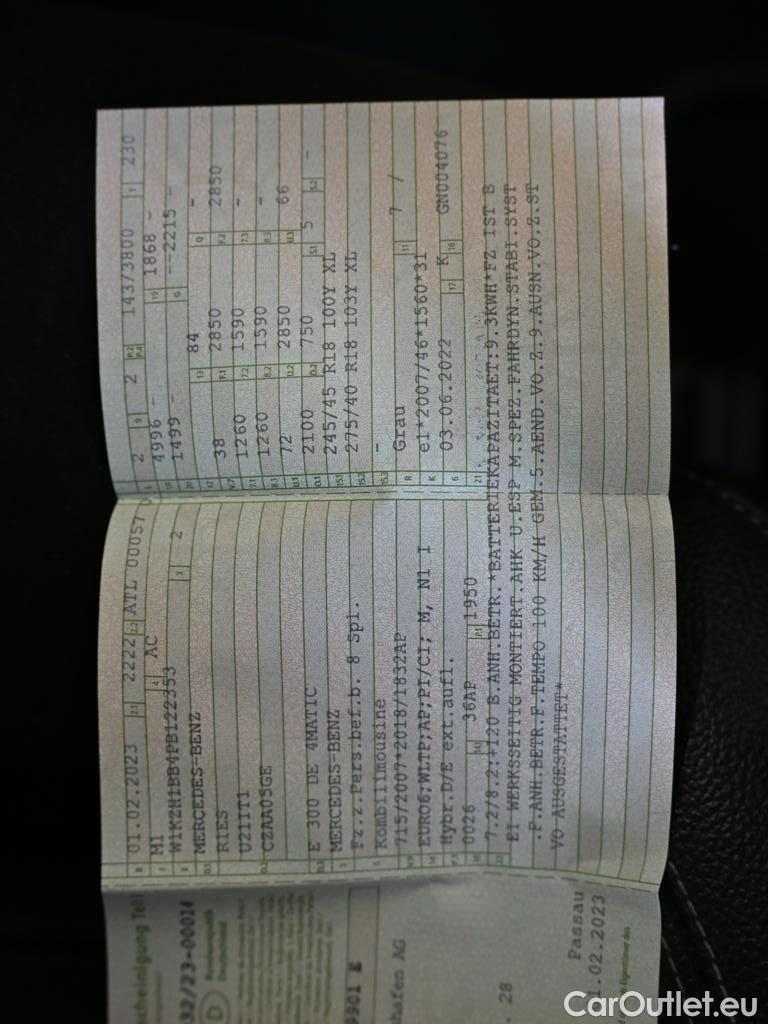 scheinigung Teil
32/23-00014
D
Bundesrepublik
Deutschland
9901 E
hafen AG
. 28
Passau
1.02.2023
B 01.02.2023 2.1 2222 2.2 ATL 00057
J M1 4 AC
E W1KZH1BB4PB122353 3 2
D.1 MERCEDES-BENZ
RIES
D.2 U21IT1
CZAA05GE
D.3 E 300 DE 4MATIC
2 MERCEDES-BENZ
Fz.z.Pers.bef.b. 8 Spl.
5 Kombilimousine
V.9 715/2007*2018/1832AP
14 EURO6;WLTP;AP;PI/CI; M, N1 I
P.3 Hybr.D/E ext.aufl.
10 0026 14.1 36AP P.1 1950
22 7.2/8.2:+120 B.ANH.BETR.*BATTERIEKAPAZITAET:9.3KWH*FZ IST B
EI WERKSSEITIG MONTIERT.AHK U.ESP M.SPEZ.FAHRDYN.STABI.SYST
.F.ANH.BETR.F.TEMPO 100 KM/H GEM.5.AEND.VO.Z.9.AUSN.VO.Z.ST
VO AUSGESTATTET*
L 2 9 2 P.2 P.4 143/3800 T 230
18 4996 - 19 1868 -
20 1499 - G --2215 -
12 - 13 84 Q -
V.7 38 F.1 2850 F.2 2850
7.1 1260 7.2 1590 7.3 -
8.1 1260 8.2 1590 8.3 -
U.1 72 U.2 2850 U.3 66
O.1 2100 O.2 750 S.1 5 S.2 -
15.1 245/45 R18 100Y XL
15.2 275/40 R18 103Y XL
15.3 -
R Grau 11 7 /
K e1*2007/46*1560*31
6 03.06.2022 17 K 16 GN004076
21
CarOutlet.eu